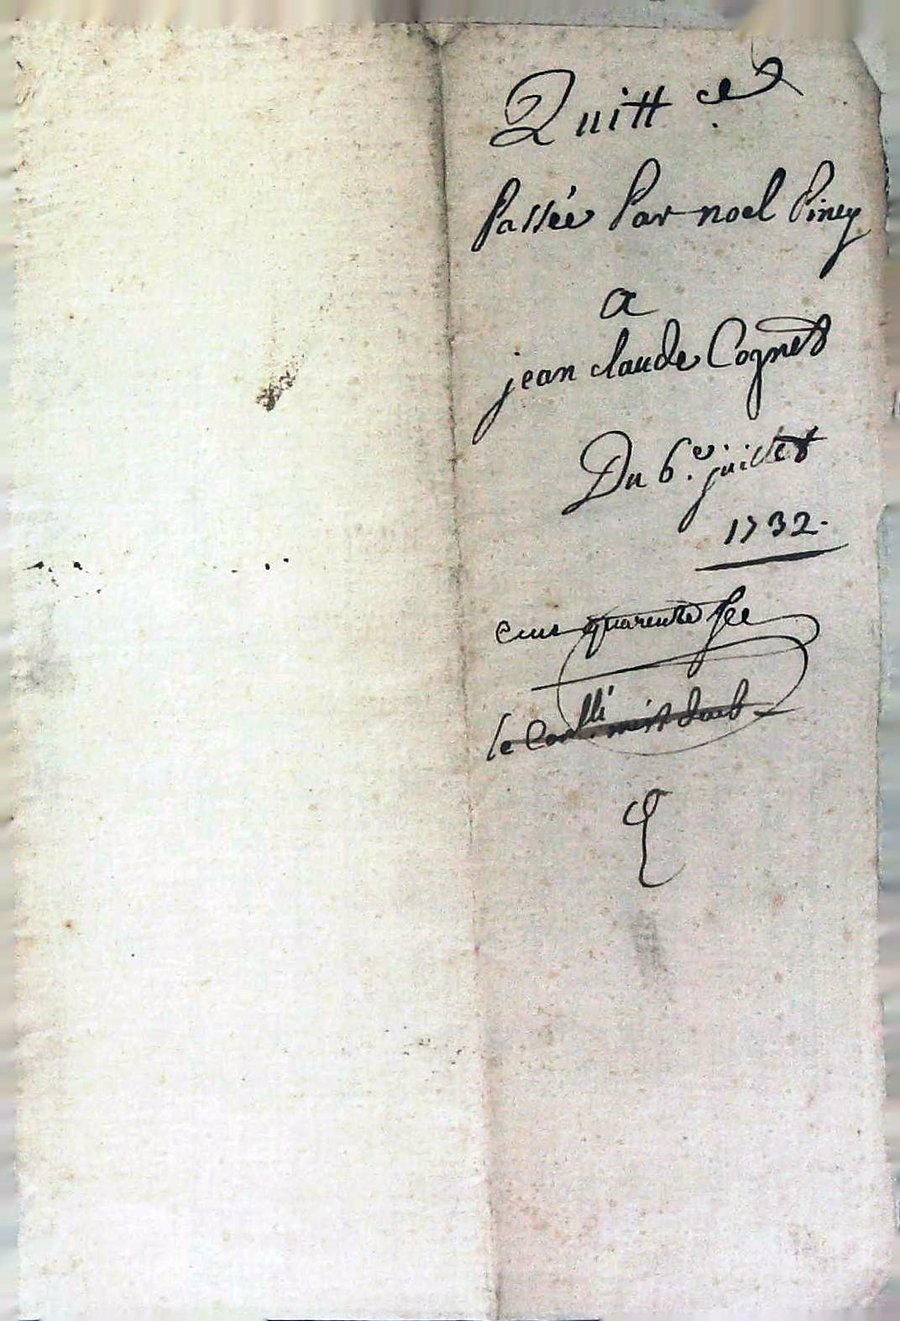 Quitt ce
passée par noel Piney
a
jean claude Cognet
Du 6e. juillet
1732.
quarente
le